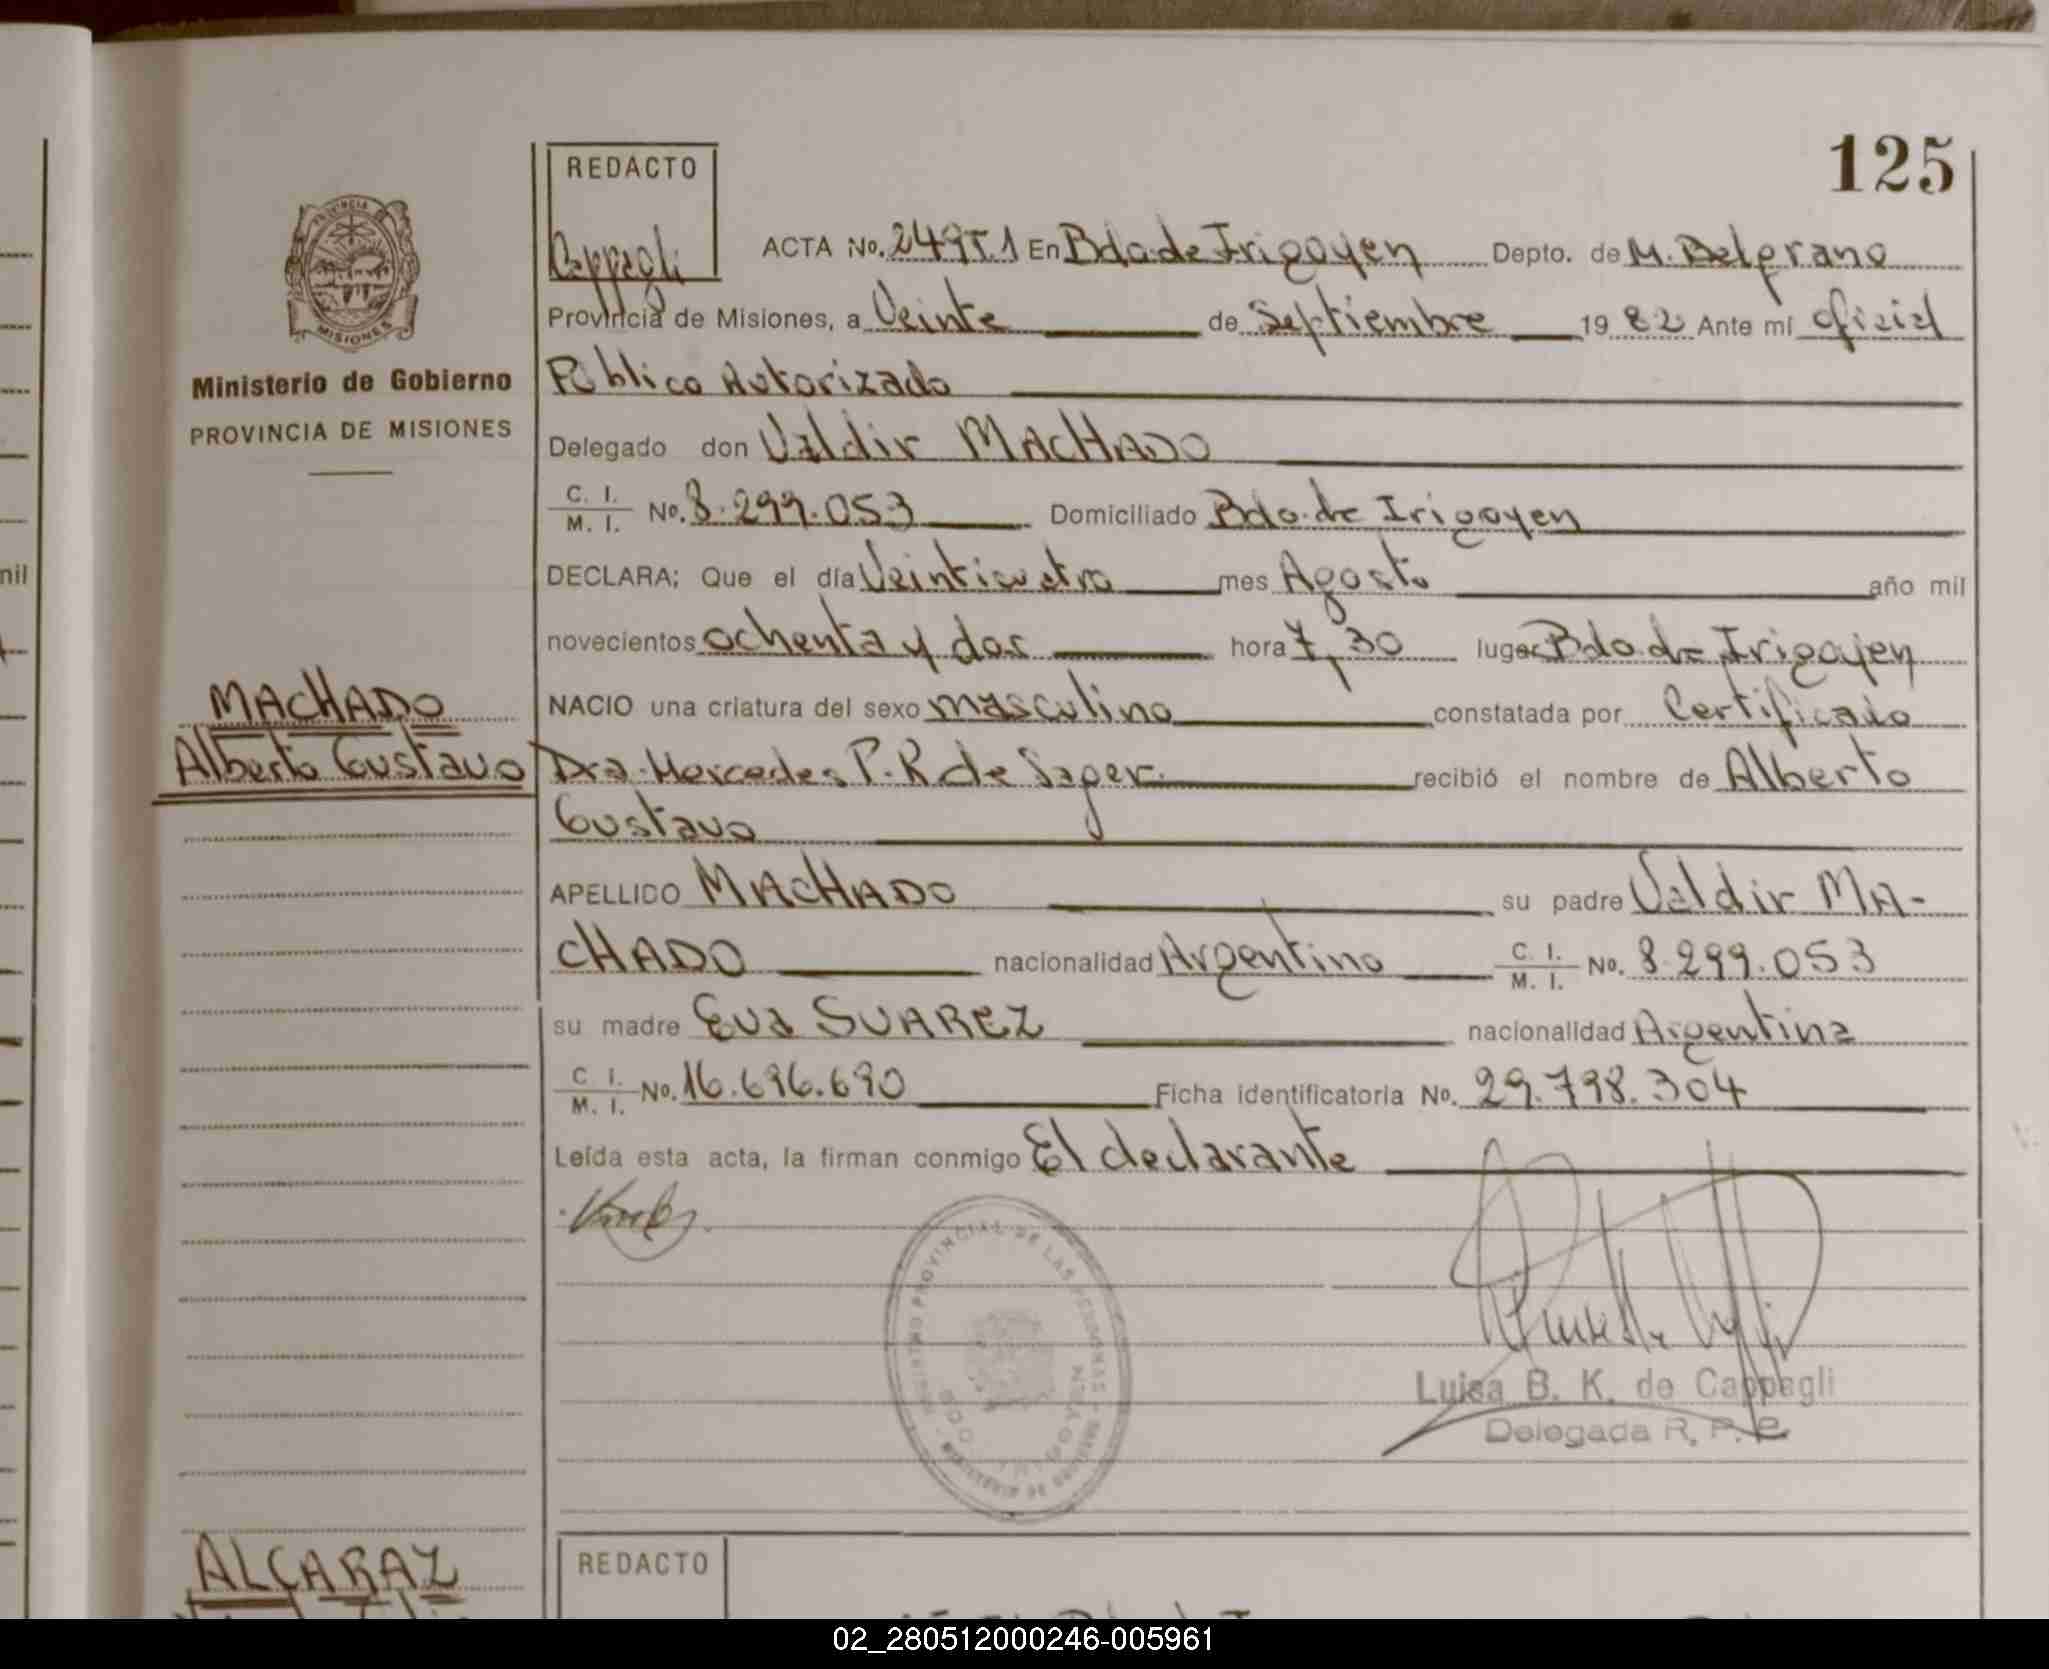 125
REDACTO
Cappagli
PROVINCIA DE
MISIONES
ACTA No. 249 T.1 En Bdo de Irigoyen Depto. de M. Belgrano
Provincia de Misiones, a Veinte de Septiembre 19 82 Ante mí Oficial
Público Autorizado
Ministerio de Gobierno
PROVINCIA DE MISIONES
Delegado don Valdir MACHADO
C. I. / M. I. No. 8.299.053 Domiciliado Bdo. de Irigoyen
DECLARA; Que el día Veinticuatro mes Agosto año mil
novecientos ochenta y dos hora 7,30 lugar Bdo de Irigoyen
NACIO una criatura del sexo masculino constatada por Certificado
MACHADO
Alberto Gustavo
Dra. Mercedes P. R de Sager. recibió el nombre de Alberto
Gustavo
APELLIDO MACHADO su padre Valdir MA-
CHADO nacionalidad Argentino C. I. / M. I. No. 8.299.053
su madre Eva SUAREZ nacionalidad Argentina
C. I. / M. I. No. 16.696.690 Ficha identificatoria No. 29.798.304
Leída esta acta, la firman conmigo El declarante
REGISTRO PROVINCIAL DE LAS PERSONAS
BDO. IRIGOYEN
Luisa B. K. de Cappagli
Delegada R. P. P.
ALCARAZ
REDACTO
nil
02_280512000246-005961